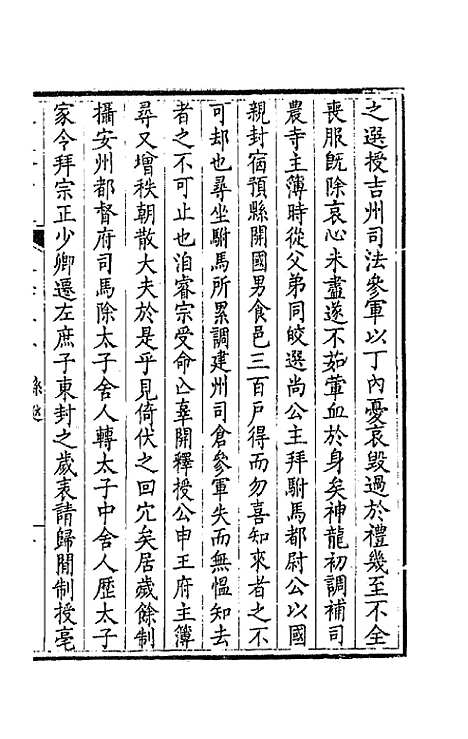 之選授吉州司法參軍以丁內憂哀毀過於禮幾至不全
喪服既除哀心未盡遂不茹葷血於身矣神龍初調補司
農寺主簿時從父弟同皎選尚公主拜駙馬都尉公以國
親封宿預縣開國男食邑三百戶得而勿喜知來者之不
可却也尋坐駙馬所累調建州司倉參軍失而無慍知去
者之不可止也洎睿宗受命公辜開釋授公申王府主簿
尋又增秩朝散大夫於是乎見倚伏之回穴矣居歲餘制
攝安州都督府司馬除太子舍人轉太子中舍人歷太子
家令拜宗正少卿遷左庶子東封之歲表請歸閒制授亳